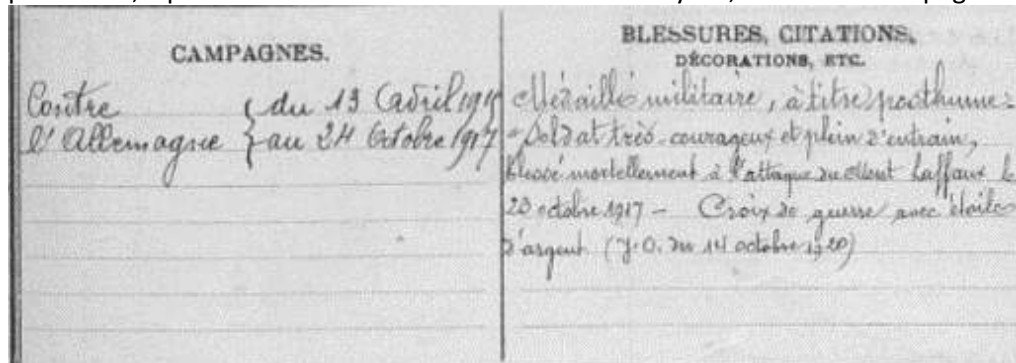 CAMPAGNES.
Contre { du 13 Avril 1915
l'Allemagne } au 24 Octobre 1917
BLESSURES, CITATIONS,
DÉCORATIONS, ETC.
Médaille militaire, à titre posthume :
"Soldat très courageux et plein d'entrain,
blessé mortellement à l'attaque du Mont Laffaux le
23 octobre 1917 - Croix de guerre avec étoile
d'argent (J.O. du 14 octobre 1920)